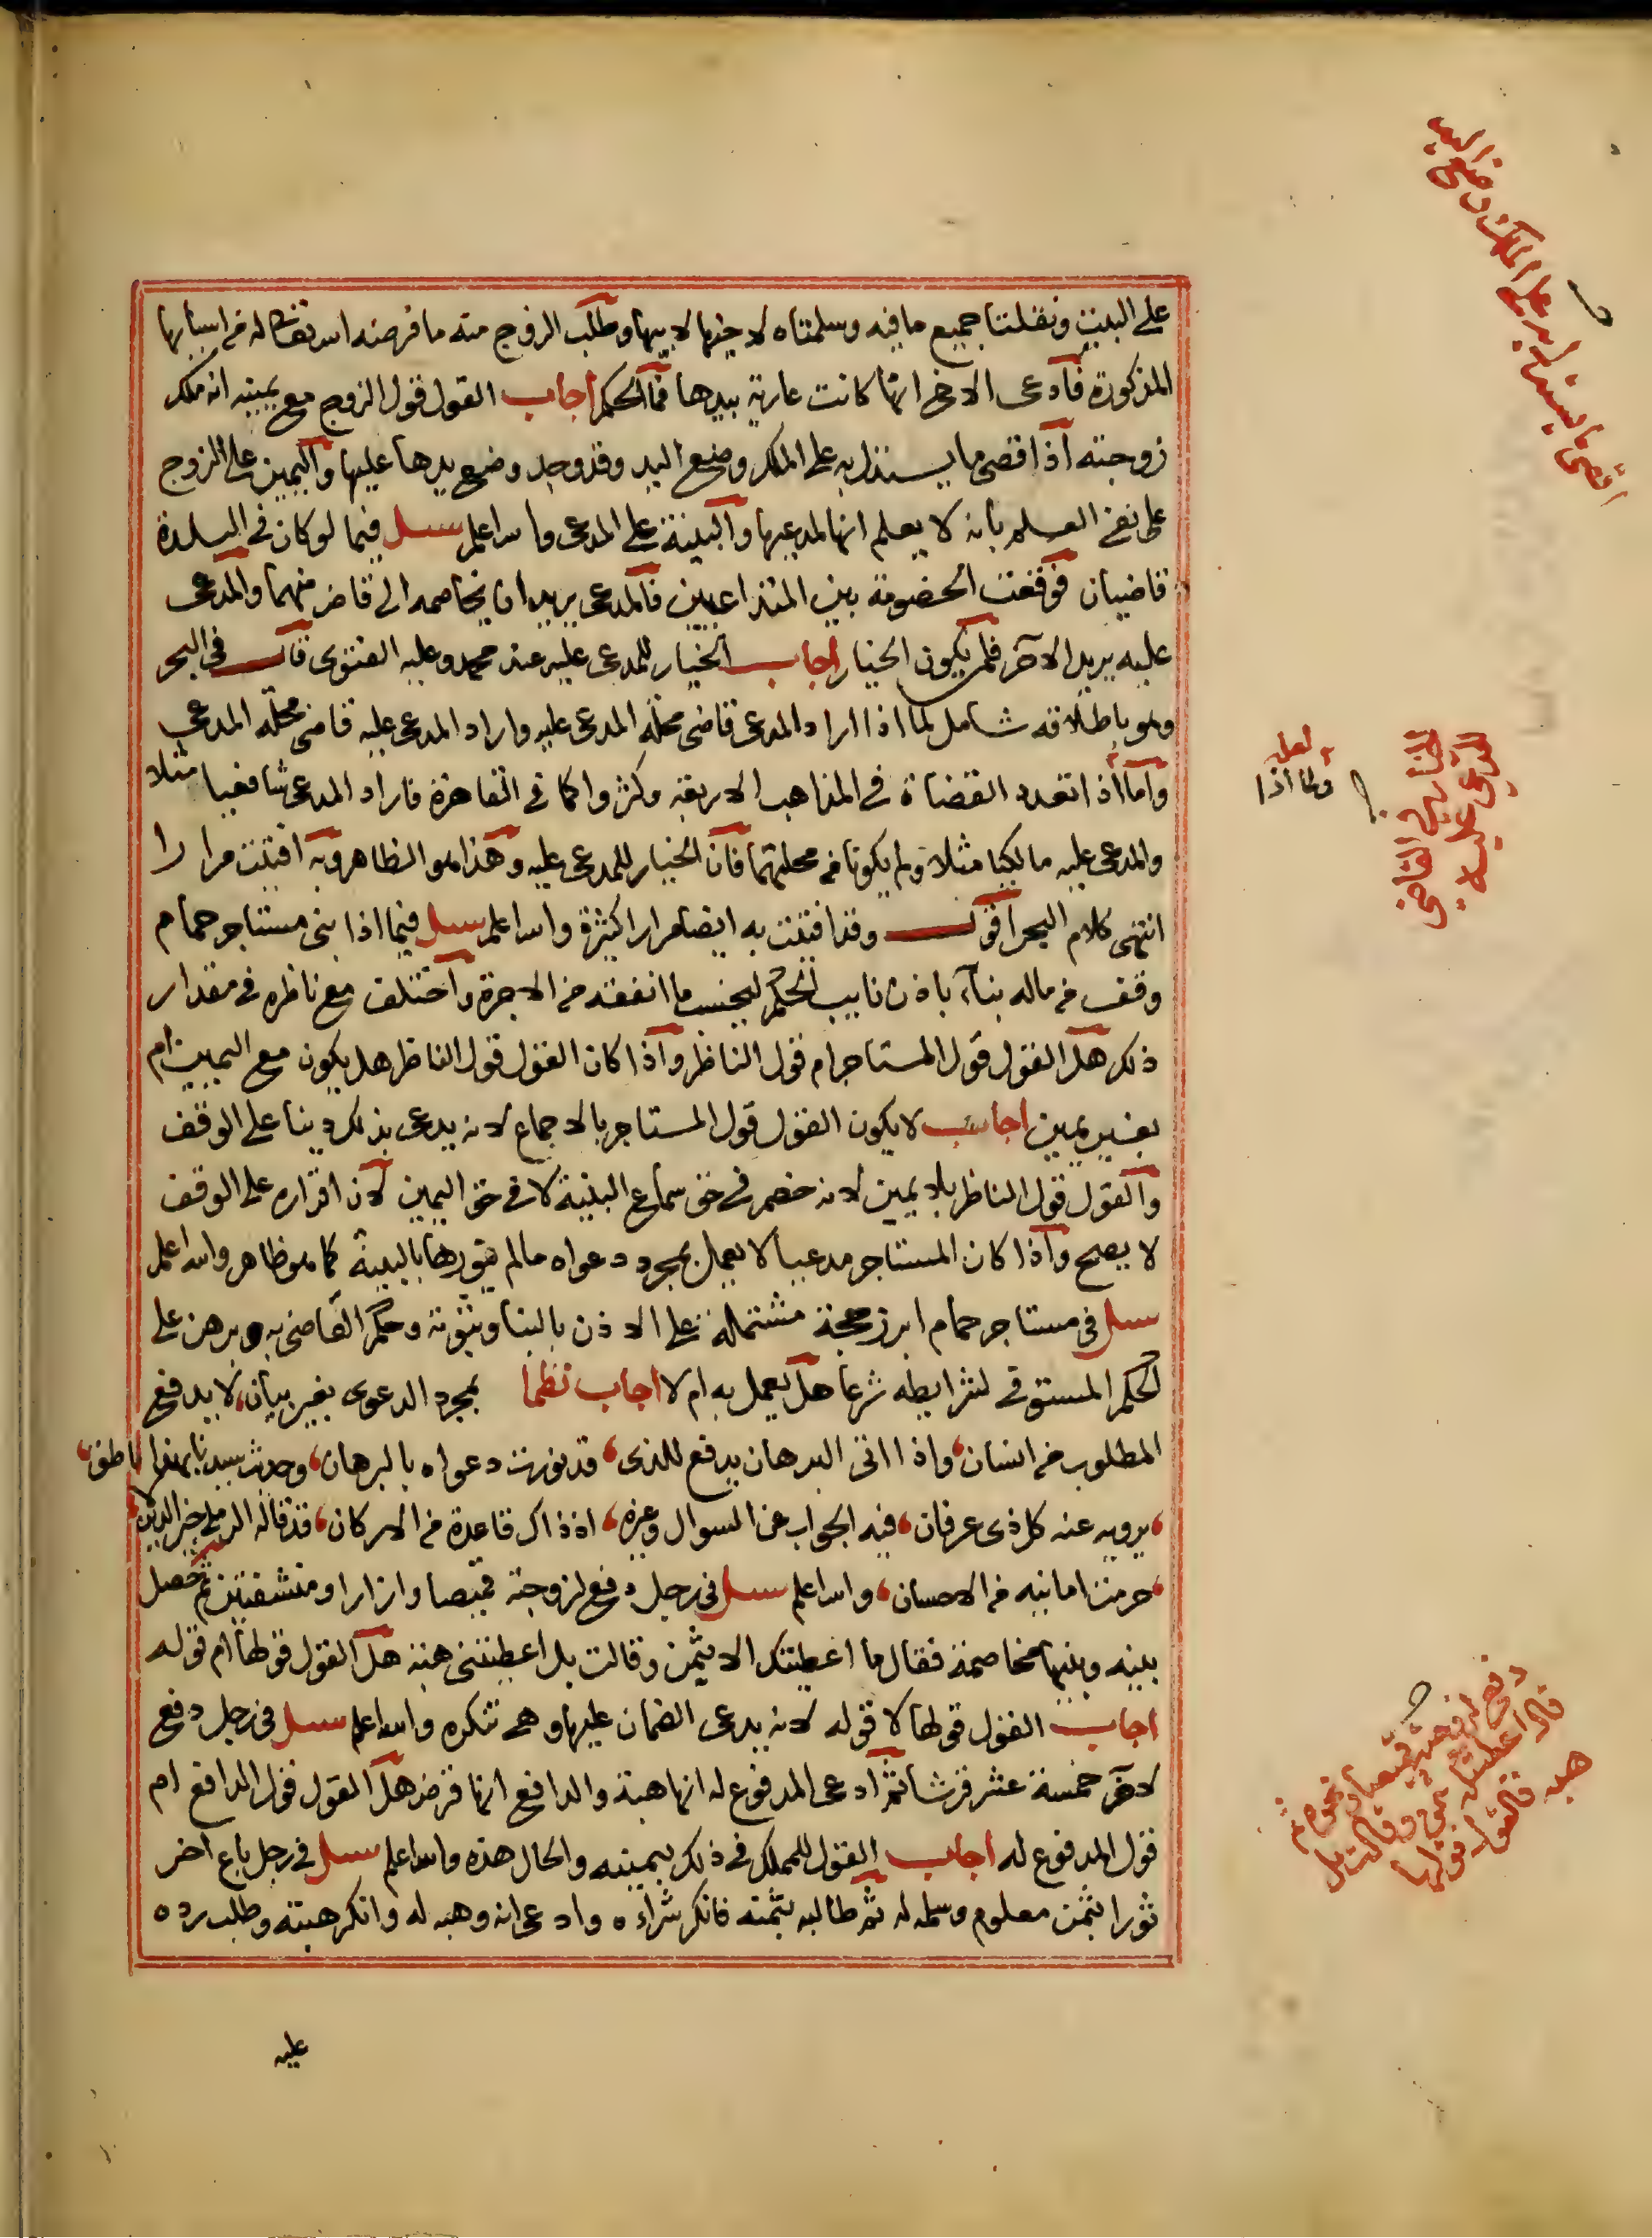 على البيت ونقلنا جميع ما فيه وسلمناه لاخيها لابيها وطلب الزوج منه ما فرضه الله تعالى له من اسبابها
المذكورة فادعى الاخ انها كانت عارية بيدها فما الحكم اجاب القول قول الزوج مع يمينه انه ملك
زوجته اذ اقصى ما يستدل به على الملك وضع اليد وقد وجد وضع يدها عليها واليمين على الزوج
على نفي العلم بانه لا يعلم انها لمدعيها والبينة على المدعى والله اعلم سئل فيما لو كان في البلدة
قاضيان فوقعت الخصومة بين المتداعيين فالمدعى يريد ان يخاصمه الى قاض منهما والمدعى
عليه يريد الاخر فلمن يكون الخيار اجاب الخيار للمدعى عليه عند محمد وعليه الفتوى قال في البحر
وهو باطلاقه شامل لما اذا اراد المدعى قاضى محلة المدعى عليه واراد المدعى عليه قاضى محلة المدعى
واما اذا تعدد القضاة في المذاهب الاربعة وكثروا كما في القاهرة فاراد المدعى شافعيا مثلا
والمدعى عليه مالكيا مثلا ولم يكونا من محلتهما فان الخيار للمدعى عليه وهذا هو الظاهر وبه افتيت مرارا
انتهى كلام البحر اقول وقد افتيت به ايضا مرارا كثيرة والله اعلم سئل فيما اذا بنى مستاجر حمام
وقف من ماله بناء باذن نايب الحكم ليحسب ما انفقه من الاجرة واختلف مع ناظره في مقدار
ذلك هل القول قول المستاجر ام قول الناظر واذا كان القول قول الناظر هل يكون مع اليمين ام
بغير يمين اجاب لا يكون القول قول المستاجر بالاجماع لانه يدعى بذلك دينا على الوقف
والقول قول الناظر بلا يمين لانه خصم في حق سماع البينة لا في حق اليمين لان اقراره على الوقف
لا يصح واذا كان المستاجر مدعيا لا يعمل بمجرد دعواه ما لم ينورها بالبينة كما هو ظاهر والله اعلم
سئل في مستاجر حمام ابرز حجة مشتملة على الاذن بالبنا وثبوته وحكم القاضى به وبرهن على
الحكم المستوفى لشرايطه شرعا هل يعمل به ام لا اجاب نظما بمجرد الدعوى بغير بيان، لا يدفع
المطلوب من انسان، واذا اتى البرهان يدفع للذى، قد نورت دعواه بالبرهان، وحديث سيدنا بهذا ناطق،
، يرويه عنه كل ذى عرفان، فيه الجواب عن السوال وغيره، اذ ذاك قاعدة من الاركان، قد قاله الرملى خير الدين
، حرمت امانيه من الاحسان، والله اعلم سئل في رجل دفع لزوجته قميصا وازارا ومنشفتين ثم حصل
بينه وبينها مخاصمة فقال ما اعطيتك الا بثمن وقالت بل اعطيتنى هبة هل القول قولها ام قوله
اجاب القول قولها لا قوله لانه يدعى الضمان عليها وهى تنكره والله اعلم سئل في رجل دفع
لاخر خمسة عشر قرشا ثم ادعى المدفوع له انها هبة والدافع انها قرض هل القول قول الدافع ام
قول المدفوع له اجاب القول للمملك في ذلك بيمينه والحال هذه والله اعلم سئل في رجل باع اخر
ثورا بثمن معلوم وسلمه له ثم طالبه بثمنه فانكر شراءه وادعى انه وهبه له وانكر هبته وطلب رده
عليه
اقصى ما يستدل به على الملك وضع اليد
لعل
ولما اذا
الخيار في القاضى
للمدعى عليه
دفع لزوجته قميصا ونحوه ثم
قال اعطيتك بثمن وقالت بل
هبه فالقول قولها